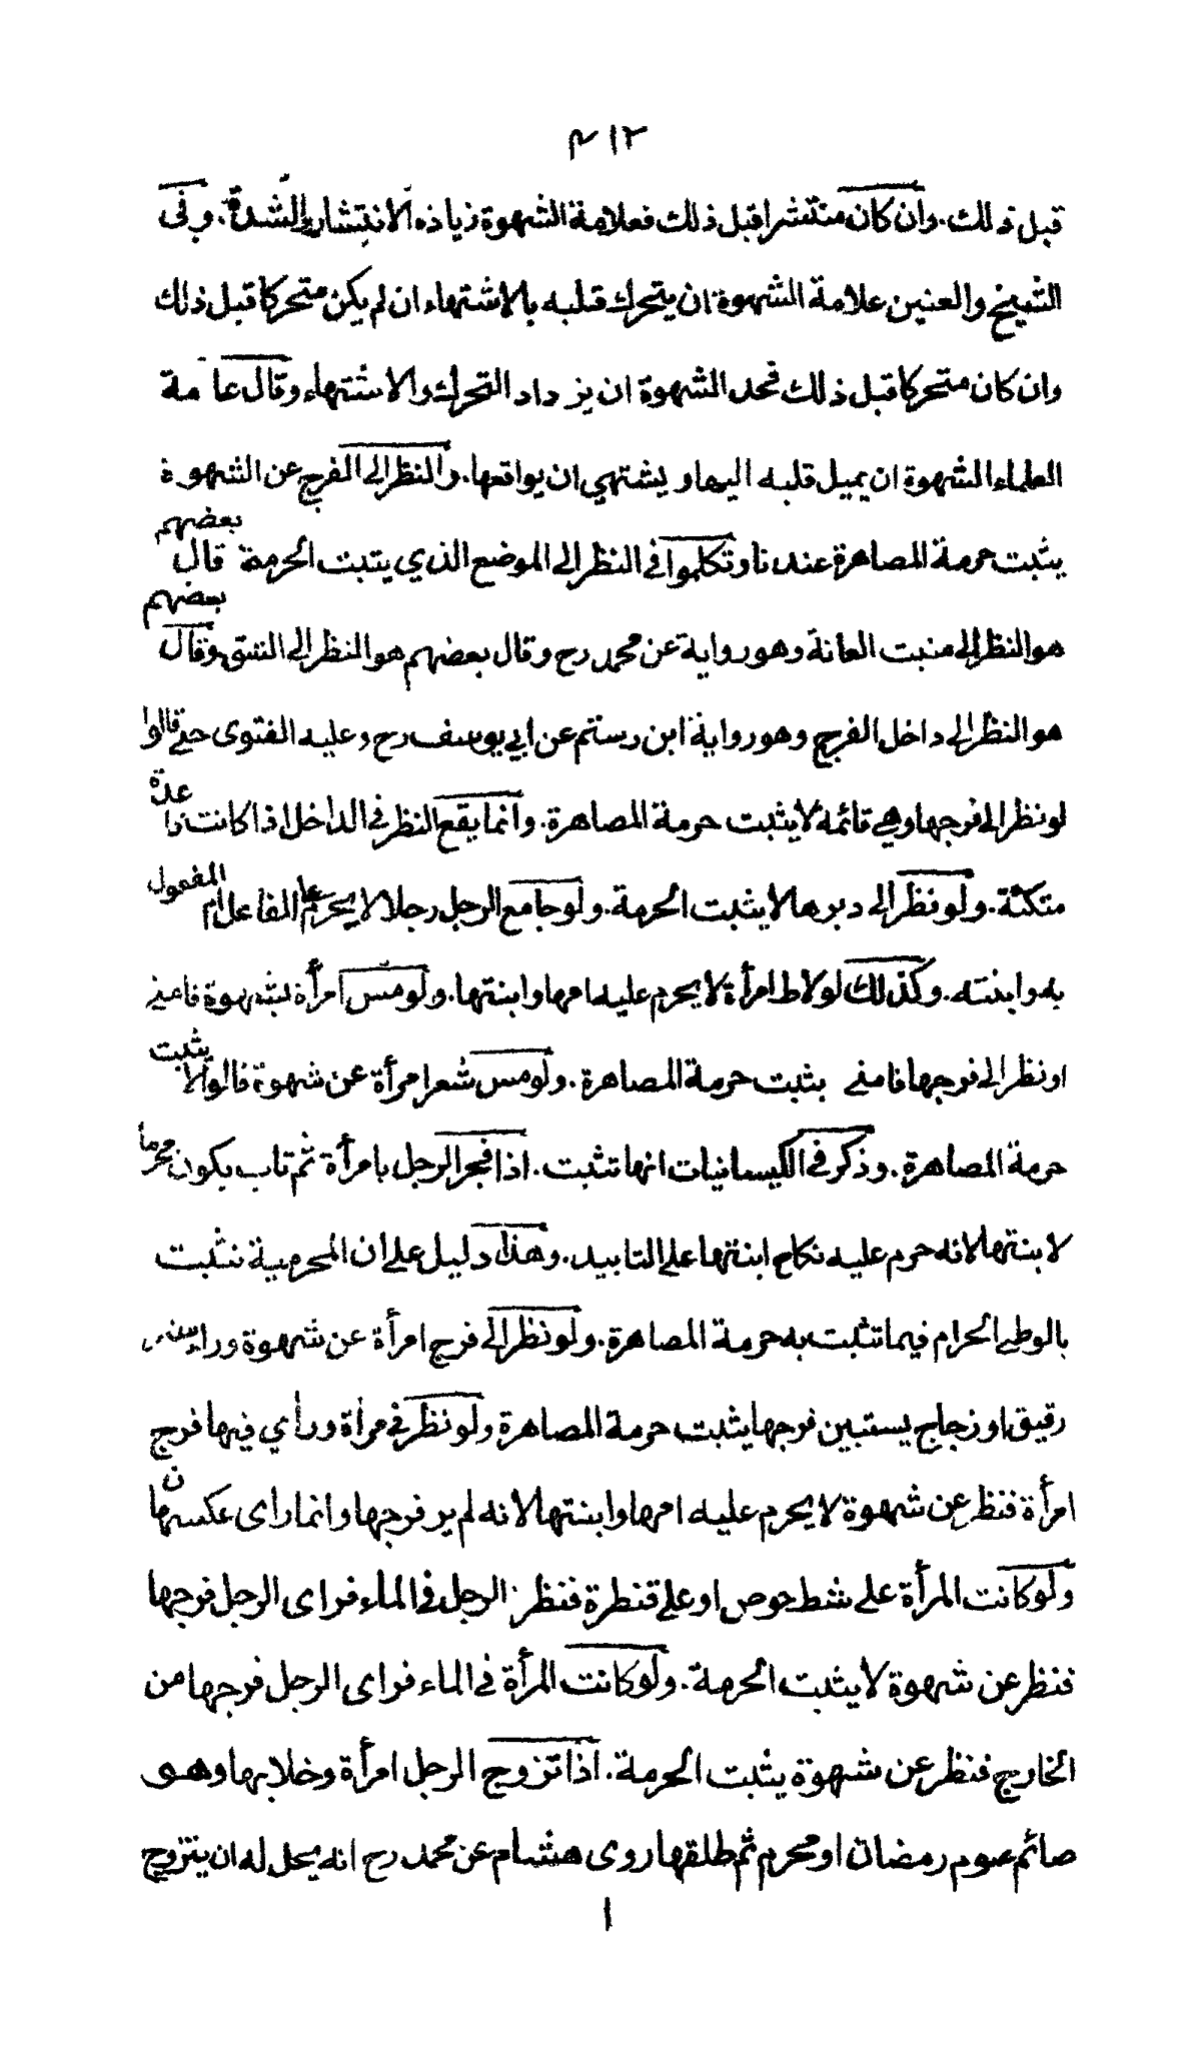 ٤١٢
قبل ذلك. وان كان منتشرا قبل ذلك فعلامة الشهوة زيادة الانتشار والشدة. وفى
الشيخ والعنين علامة الشهوة ان يتحرك قلبه بالاشتهاء ان لم يكن متحركا قبل ذلك
وان كان متحركا قبل ذلك فحد الشهوة ان يزداد التحرك والاشتهاء وقال عامة
العلماء الشهوة ان يميل قلبه اليها ويشتهي ان يواقعها. والنظر الى الفرج عن الشهوة
يثبت حرمة المصاهرة عندنا وتكلموا في النظر الى الموضع الذي يثبت الحرمة قال بعضهم
هو النظر الى منبت العانة وهو رواية عن محمد رح وقال بعضهم هو النظر الى الشق وقال بعضهم
هو النظر الى داخل الفرج وهو رواية ابن رستم عن ابي يوسف رح وعليه الفتوى حتى قالوا
لو نظر الى فرجها وهي قائمة لا يثبت حرمة المصاهرة. وانما يقع النظر في الداخل اذا كانت قاعدة
متكئة. ولو نظر الى دبرها لا يثبت الحرمة. ولو جامع الرجل رجلا لا يحرم على الفاعل ام المفعول
به وابنته. وكذلك لو لاط امرأة لا يحرم عليه امها وابنتها. ولو مسّ امرأة بشهوة فامنى
او نظر الى فرجها فامنى يثبت حرمة المصاهرة. ولو مس شعر امرأة عن شهوة قالوا لا يثبت
حرمة المصاهرة. وذكر في الكيسانيات انها تثبت. اذا فجر الرجل بامرأة ثم تاب يكون محرما
لابنتها لانه حرم عليه نكاح ابنتها على التابيد. وهذا دليل على ان المحرمية تثبت
بالوطي الحرام فيما تثبت به حرمة المصاهرة. ولو نظر الى فرج امرأة عن شهوة وراء ستر
رقيق او زجاج يستبين فرجها يثبت حرمة المصاهرة ولو نظر في مرأة ورأي فيها فرج
امرأة فنظر عن شهوة لا يحرم عليه امها وابنتها لانه لم ير فرجها وانما راى عكس فرجها
ولو كانت المرأة على شط حوض او على قنطرة فنظر الرجل في الماء فراى الرجل فرجها
فنظر عن شهوة لا يثبت الحرمة. ولو كانت المرأة في الماء فراى الرجل فرجها من
الخارج فنظر عن شهوة يثبت الحرمة. اذا تزوج الرجل امرأة وخلا بها وهى
صائم صوم رمضان او محرم ثم طلقها روى هشام عن محمد رح انه يحل له ان يتزوج
ا